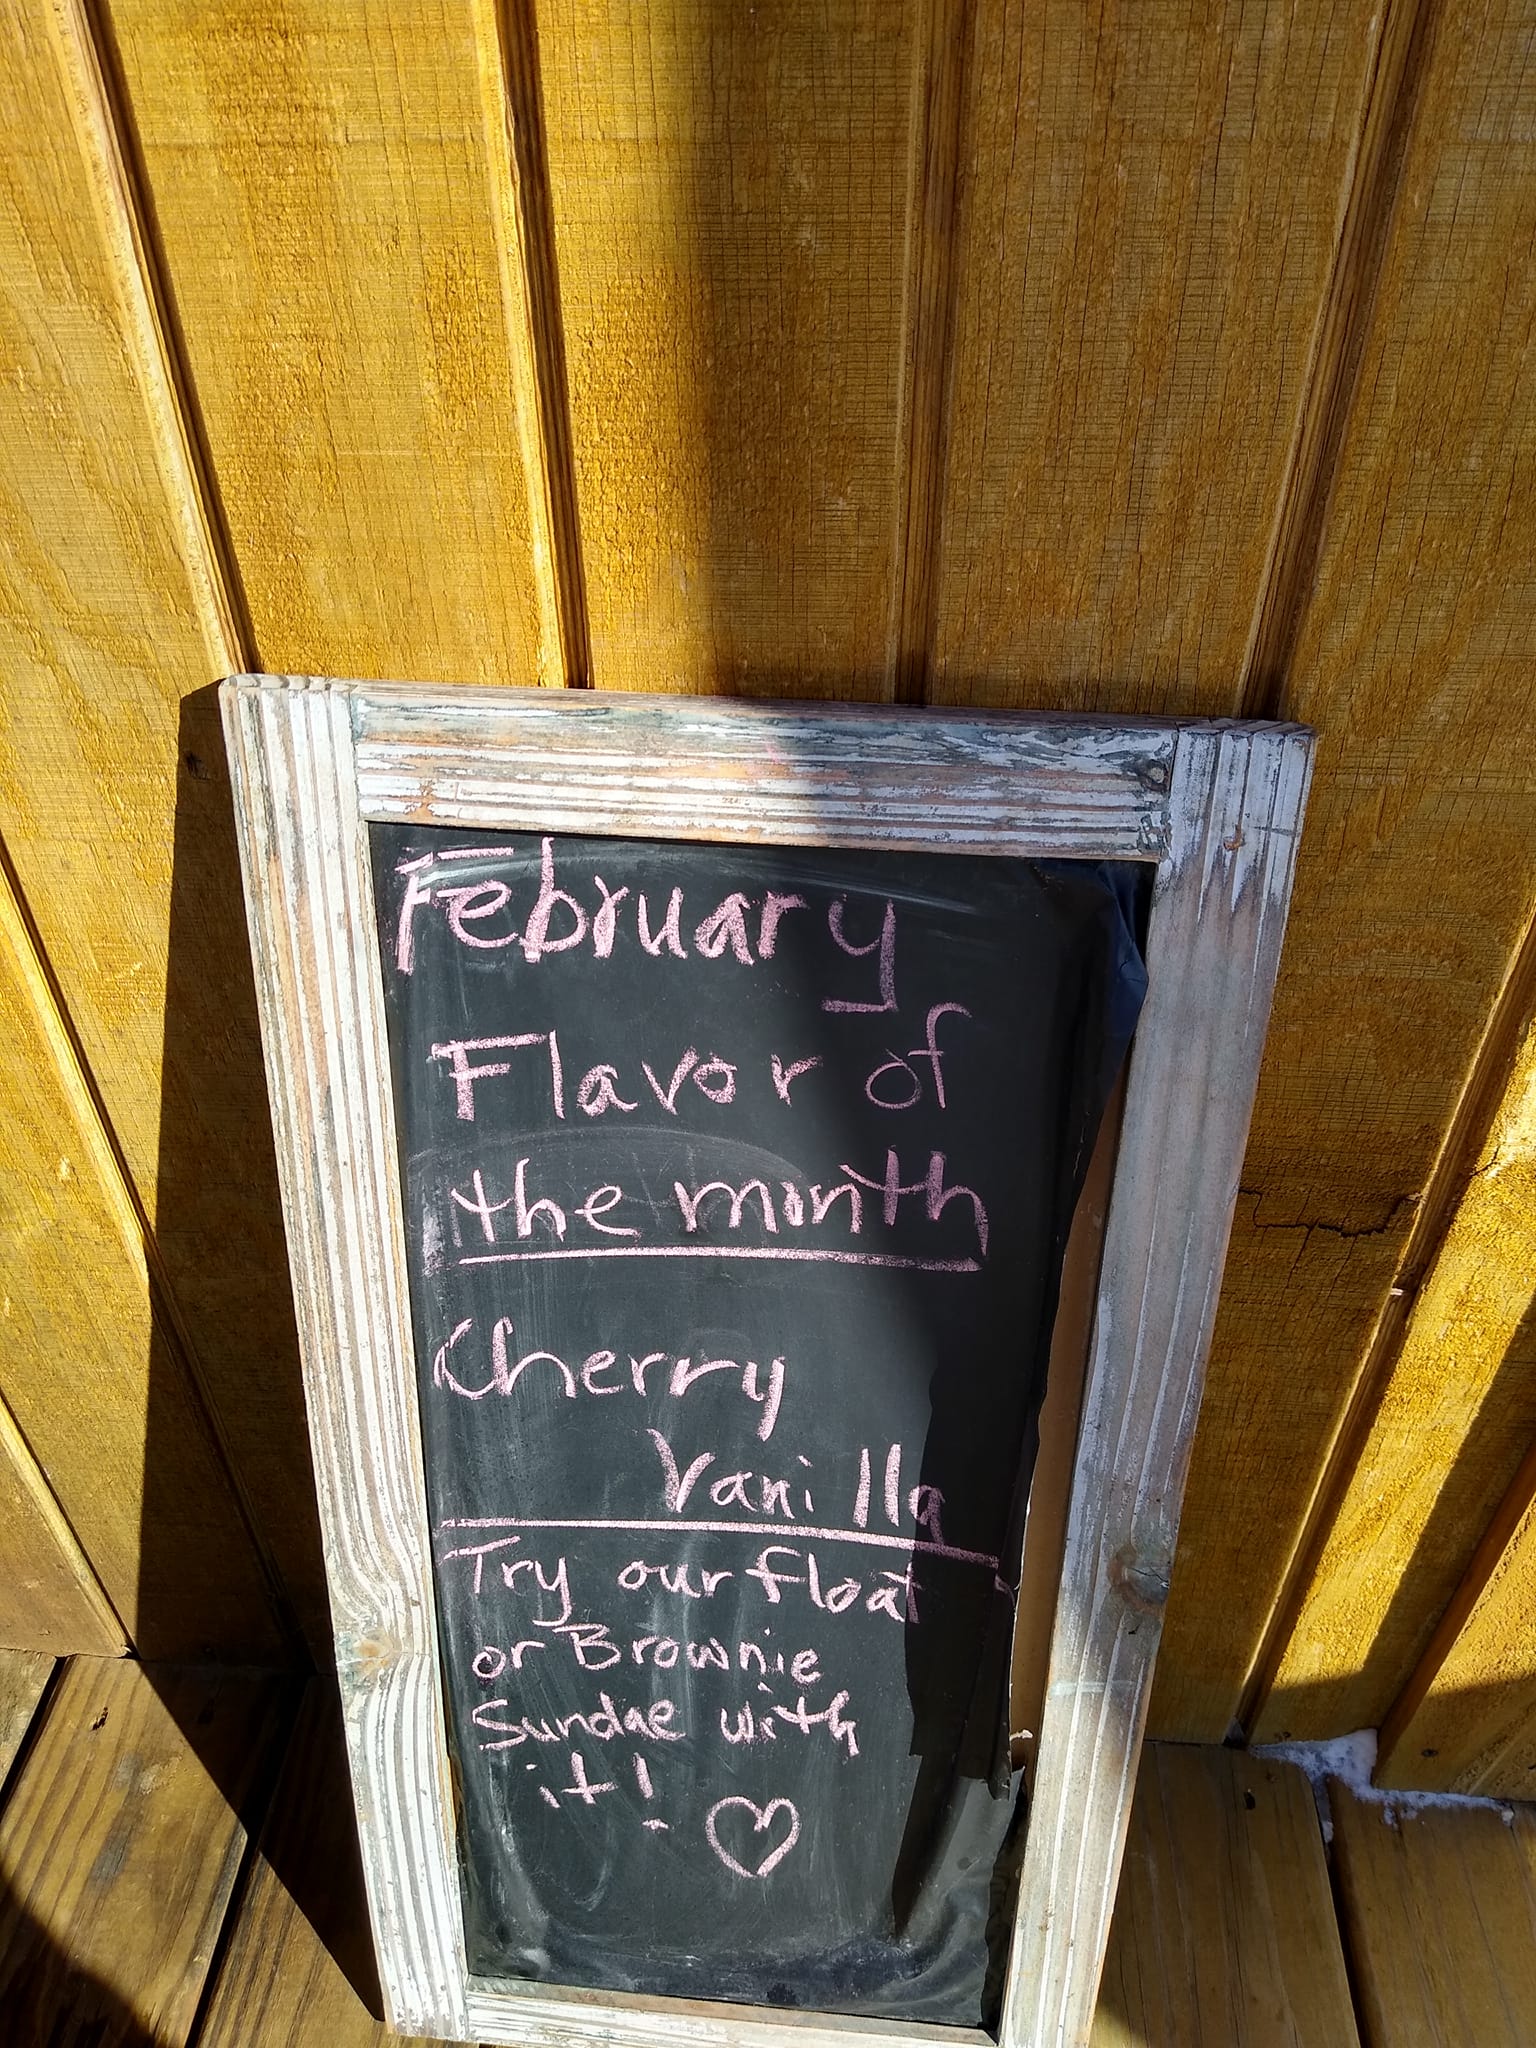 February
Flavor of
the month
Cherry
Vanilla
Try our float
or Brownie
Sundae with
it!